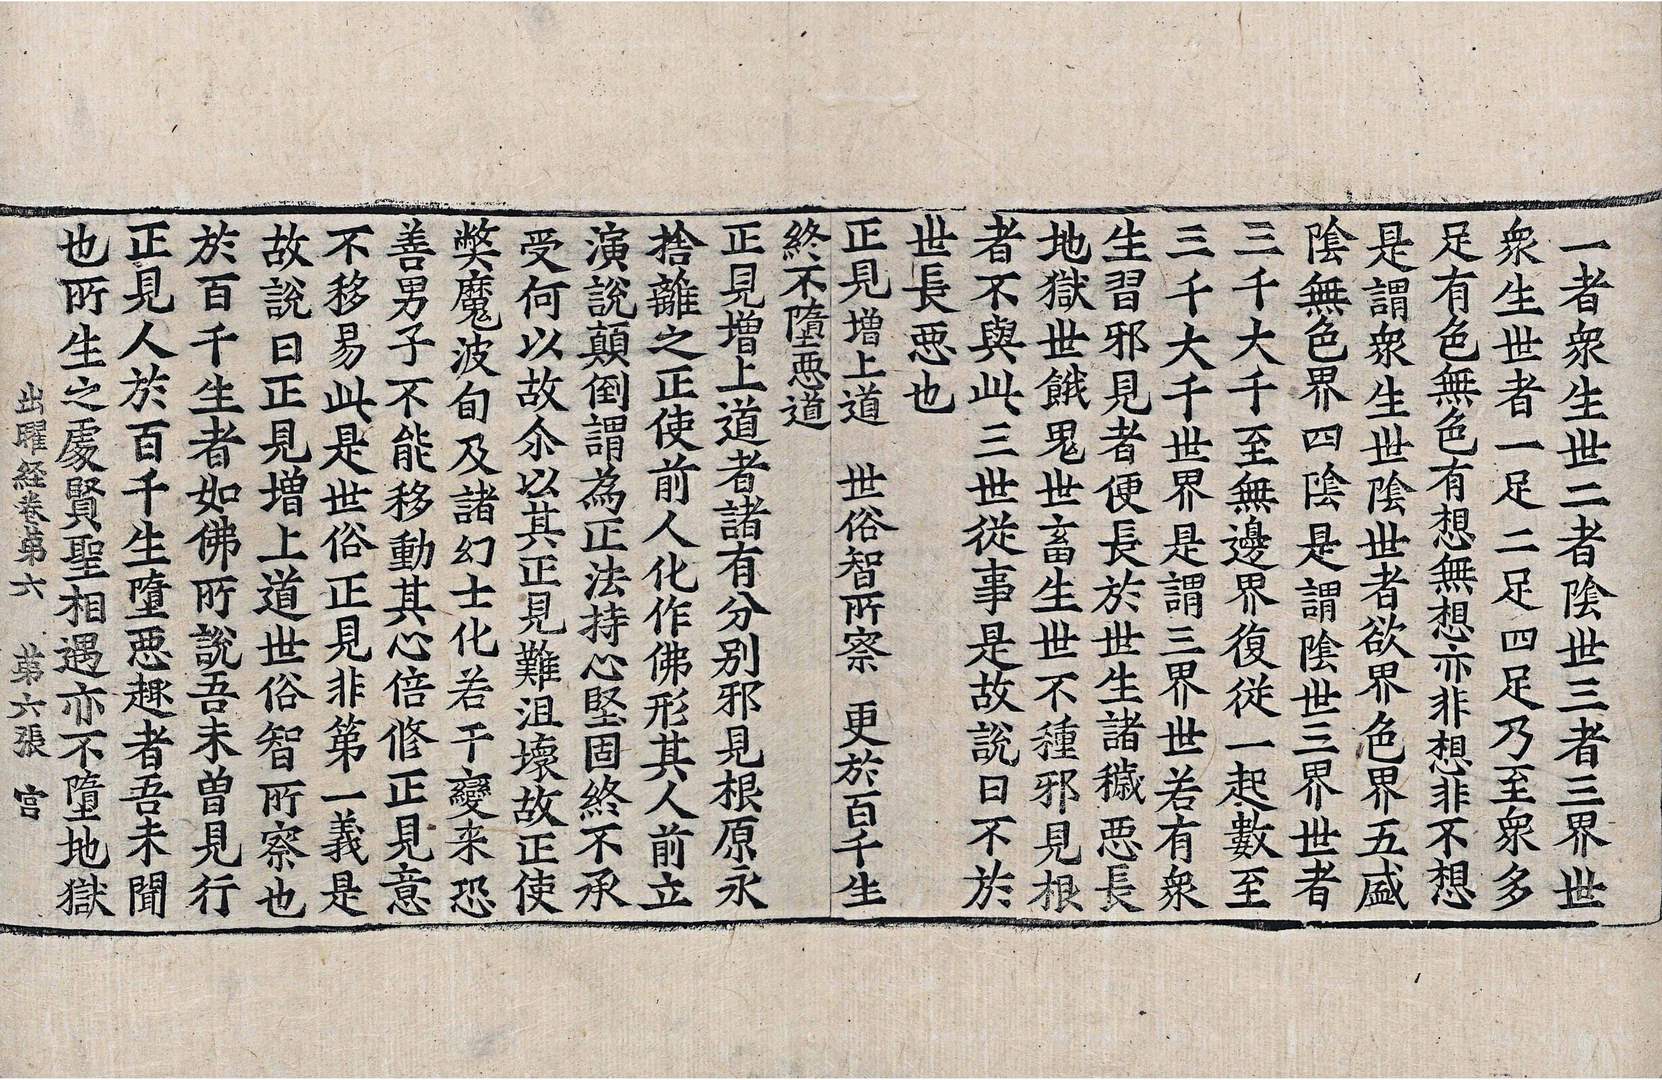 一者衆生世二者陰世三者三界世
衆生世者一足二足四足乃至衆多
足有色無色有想無想亦非想非不想
是謂衆生世陰世者欲界色界五盛
陰無色界四陰是謂陰世三界世者
三千大千至無邊界復從一起數至
三千大千世界是謂三界世若有衆
生習邪見者便長於世生諸穢惡長
地獄世餓鬼世畜生世不種邪見根
者不與此三世從事是故說曰不於
世長惡也
正見增上道　世俗智所察　更於百千生
終不墮惡道
正見增上道者諸有分別邪見根原永
捨離之正使前人化作佛形其人前立
演說顛倒謂為正法持心堅固終不承
受何以故尒以其正見難沮壞故正使
獘魔波旬及諸幻士化若干變来恐
善男子不能移動其心倍修正見意
不移易此是世俗正見非第一義是
故說曰正見增上道世俗智所察也
於百千生者如佛所說吾未曽見行
正見人於百千生墮惡趣者吾未聞
也所生之處賢聖相遇亦不墮地獄
出曜経卷第六　第六張　宮